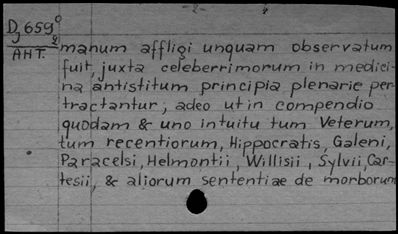 -2-
D, 659°
8
AHT.
manum affligi unquam observatum
fuit, juxta celeberrimorum in medici-
na antistitum principia plenarie per-
tractantur; adeo ut in compendio
quodam & uno intuitu tum Veterum,
tum recentiorum, Hippocratis, Galeni,
Paracelsi, Helmontii, Willisii, Sylvii, Car-
tesii, & aliorum sententiae de morborum